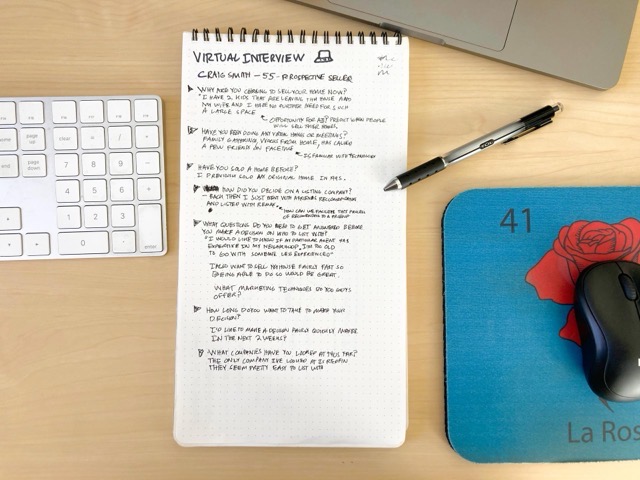 VIRTUAL INTERVIEW
CRAIG SMITH - 55 - PROSPECTIVE SELLER
WHY ARE YOU LOOKING TO SELL YOUR HOME NOW?
"I HAVE 2 KIDS THAT ARE LEAVING THE HOUSE AND
MY WIFE AND I HAVE NO FURTHER NEED FOR SUCH
A LARGE SPACE
OPPORTUNITY FOR AD? PREDICT WHEN PEOPLE
WILL SELL THEIR HOMES
HAVE YOU BEEN DOING ANY VIRTUAL HANGS OR MEETINGS?
FAMILY GATHERING, WORKS FROM HOME, HAS CALLED
A FEW FRIENDS ON FACETIME
IS FAMILIAR WITH TECHNOLOGY
HAVE YOU SOLD A HOME BEFORE?
I PREVIOUSLY SOLD AN ORIGINAL HOME IN
HOW DID YOU DECIDE ON A LISTING COMPANY?
- EACH TIME I JUST WENT WITH A FRIENDS RECOMMENDATION
AND LISTED WITH REMAX
HOW CAN WE FACILITATE THIS
OF RECOMMENDING TO A FRIEND
WHAT QUESTIONS DO YOU NEED TO GET ANSWERED BEFORE
YOU MAKE A DECISION ON WHO TO LIST WITH?
"I WOULD LIKE TO KNOW IF AN PARTICULAR AGENT HAS
EXPERTISE IN MY NEIGHBORHOOD, I'M TOO OLD
TO GO WITH SOMEONE LESS EXPERIENCED"
I ALSO WANT TO SELL MY HOUSE FAIRLY FAST SO
BEING ABLE TO DO SO WOULD BE GREAT.
WHAT MARKETING TECHNIQUES DO YOU GUYS
OFFER?
HOW LONG DO YOU WANT TO TAKE TO MAKE YOUR
DECISION?
I'D LIKE TO MAKE A DECISION FAIRLY QUICKLY MAYBE
IN THE NEXT 2 WEEKS?
WHAT COMPANIES HAVE YOU LOOKED AT THUS FAR?
THE ONLY COMPANY I'VE LOOKED AT IS REDFIN
THEY SEEM PRETTY EASY TO LIST WITH
page up
clear
=
/
*
home
end
page down
7
8
9
-
4
5
6
+
1
2
3
0
.
enter
41
La Ros